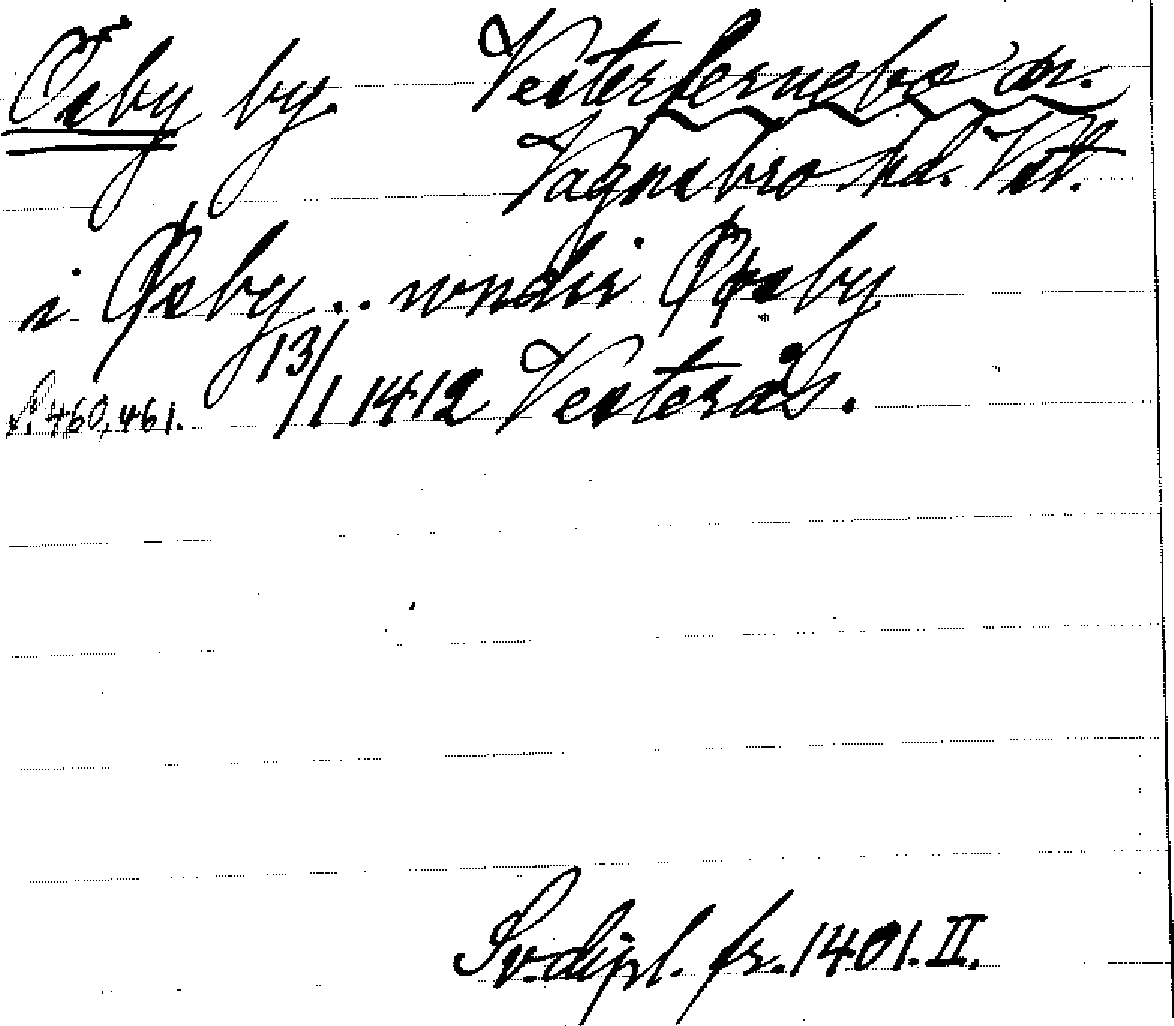 Ösby by. Vesterfernebo sn.
Vagnsbro hd. Vstl.
i Øsby .. wndir Øøsby
s. 460, 461. 13/1 1412 Vesterås.
Sv. dipl. fr. 1401. II.